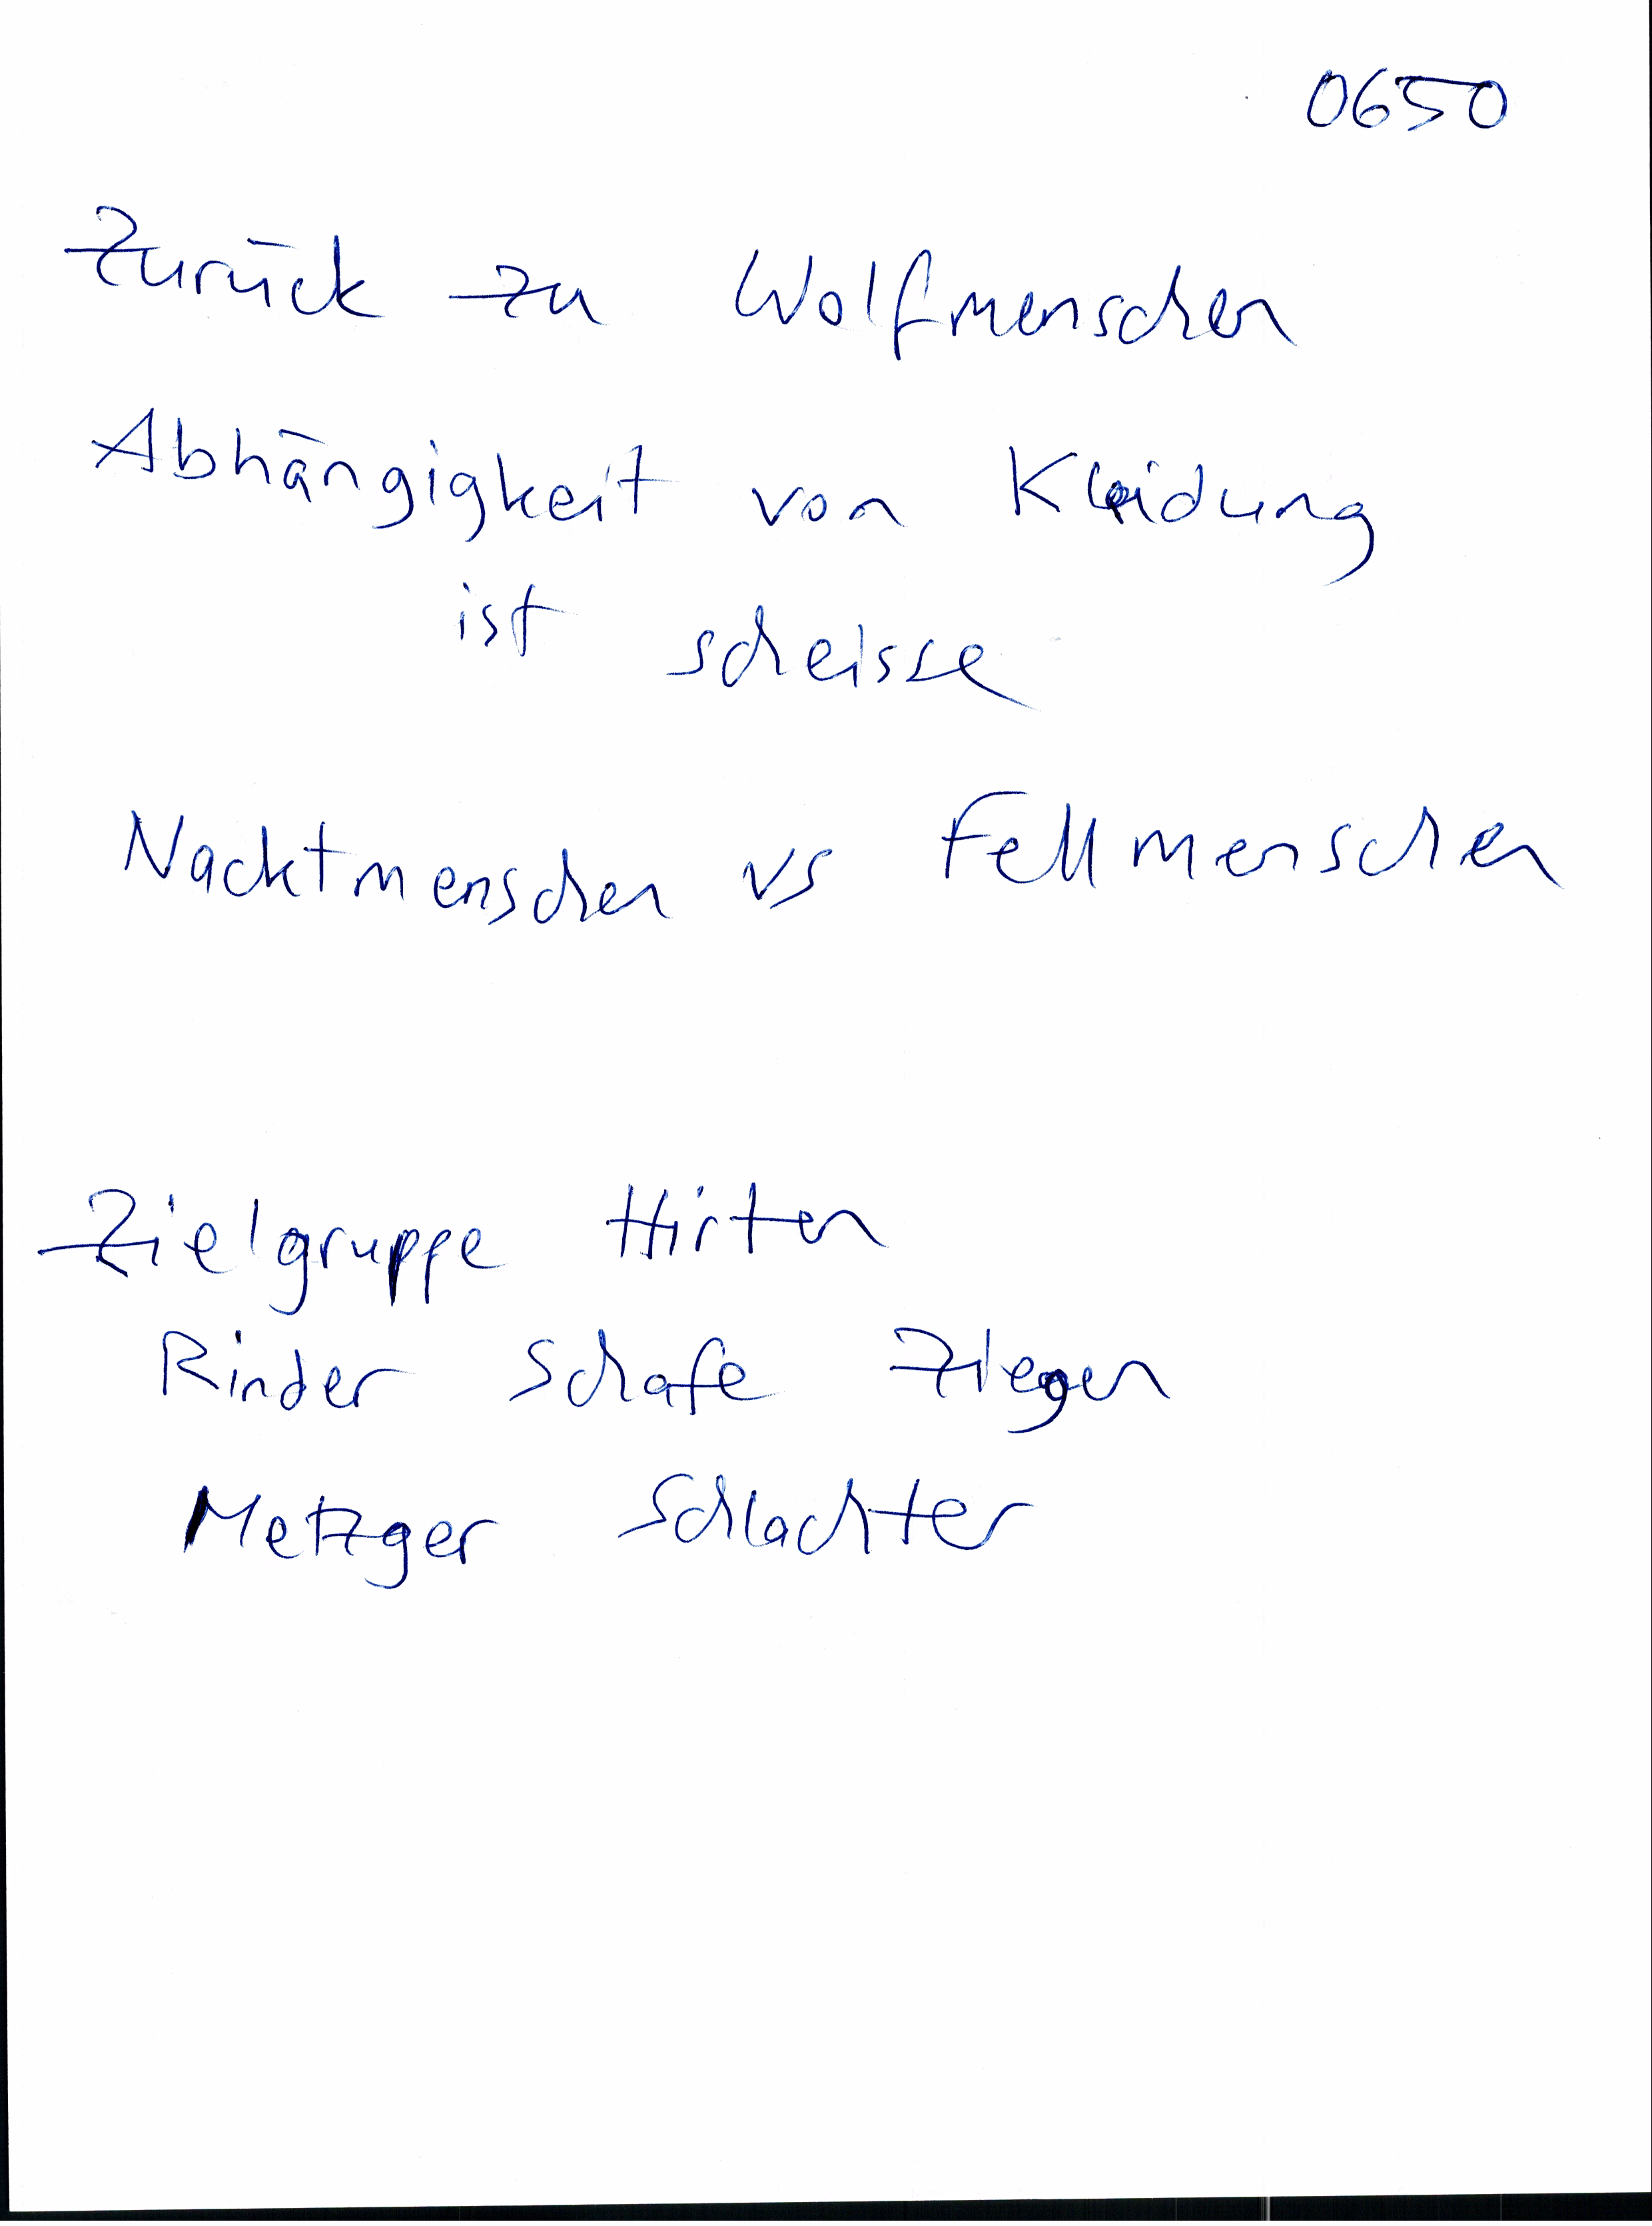 0650
Zurück zu Wolfmenschen
Abhängigkeit von Kleidung
ist scheisse
Nacktmenschen vs Fellmenschen
Zielgruppe Hirten
Rinder Schafe Ziegen
Metzger Schlachter